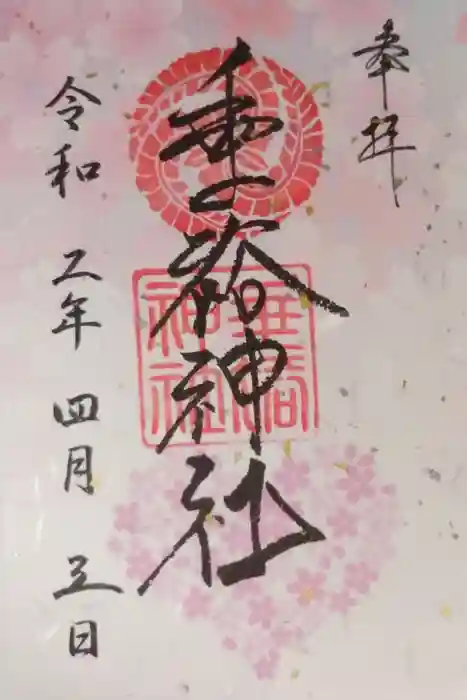 奉拝
垂裕神社
令和 二年 四月 五日
垂裕
神社